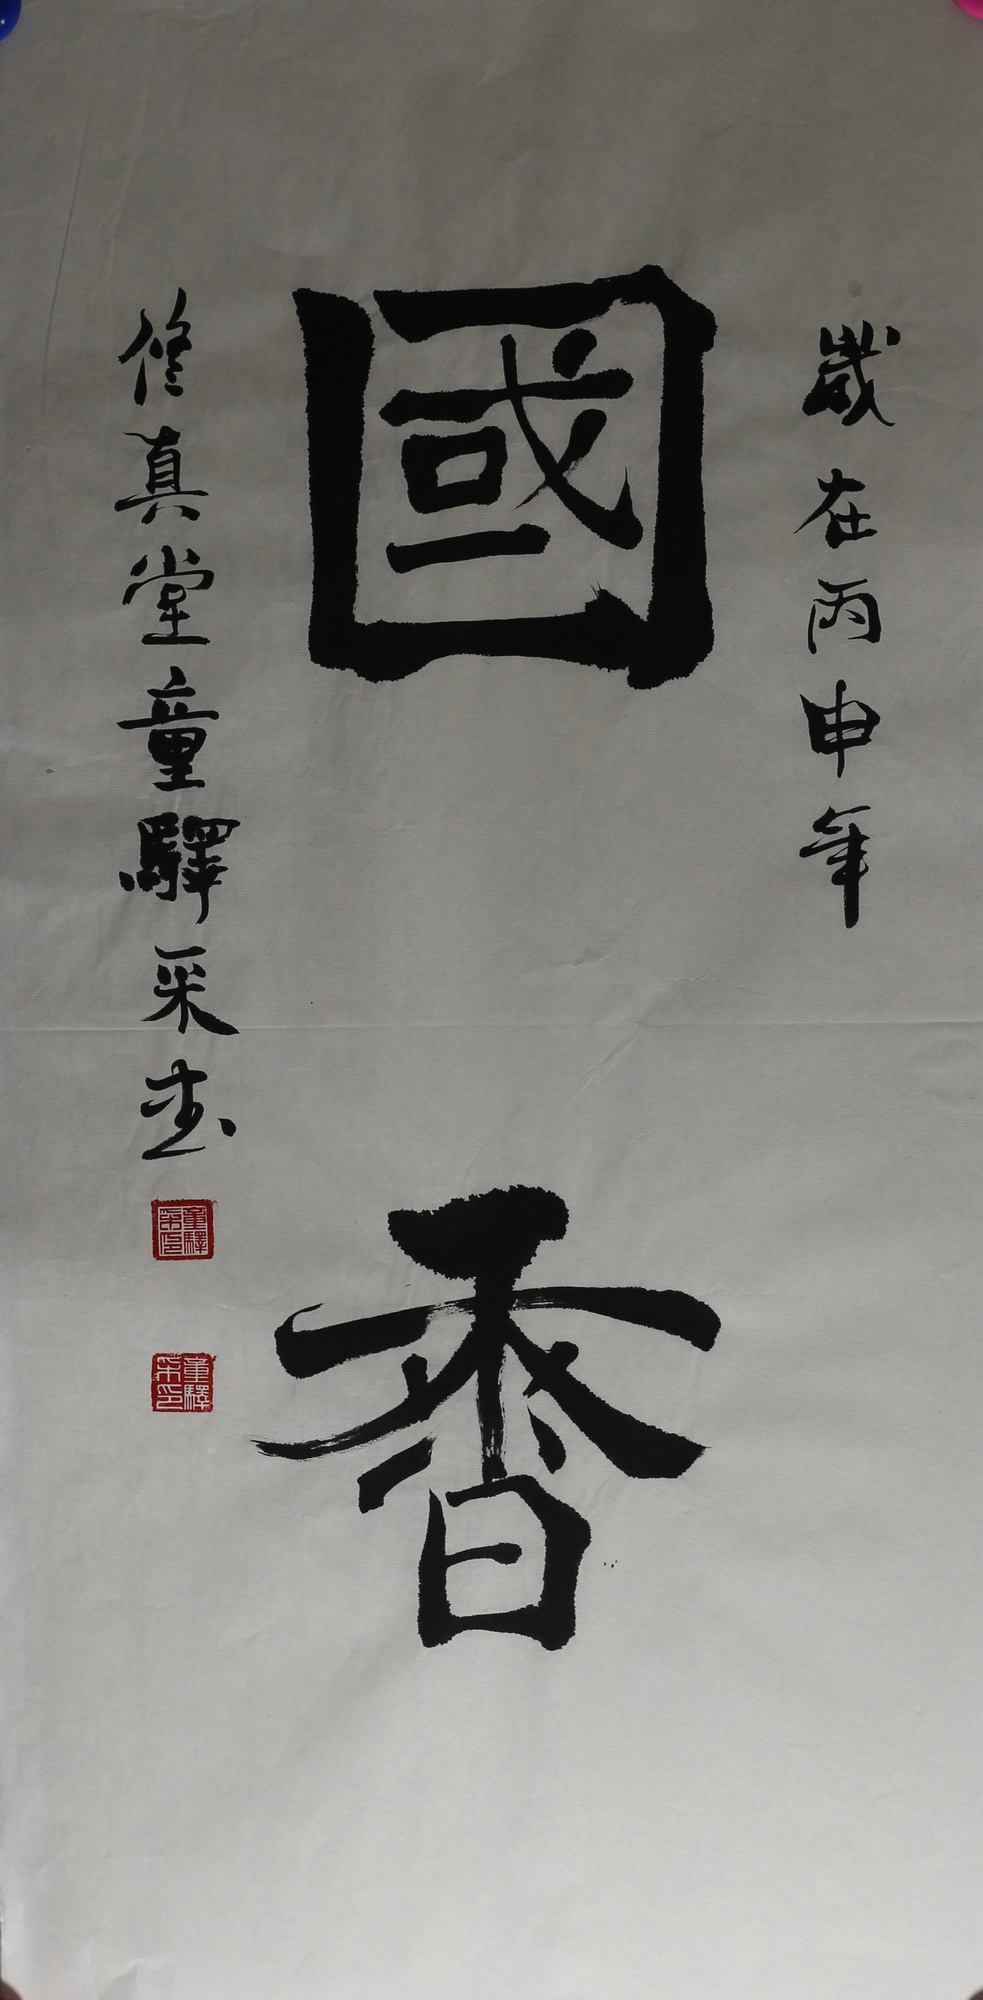 歲在丙申年
國香
修真堂童驛采書
童驛采印
童驛采印